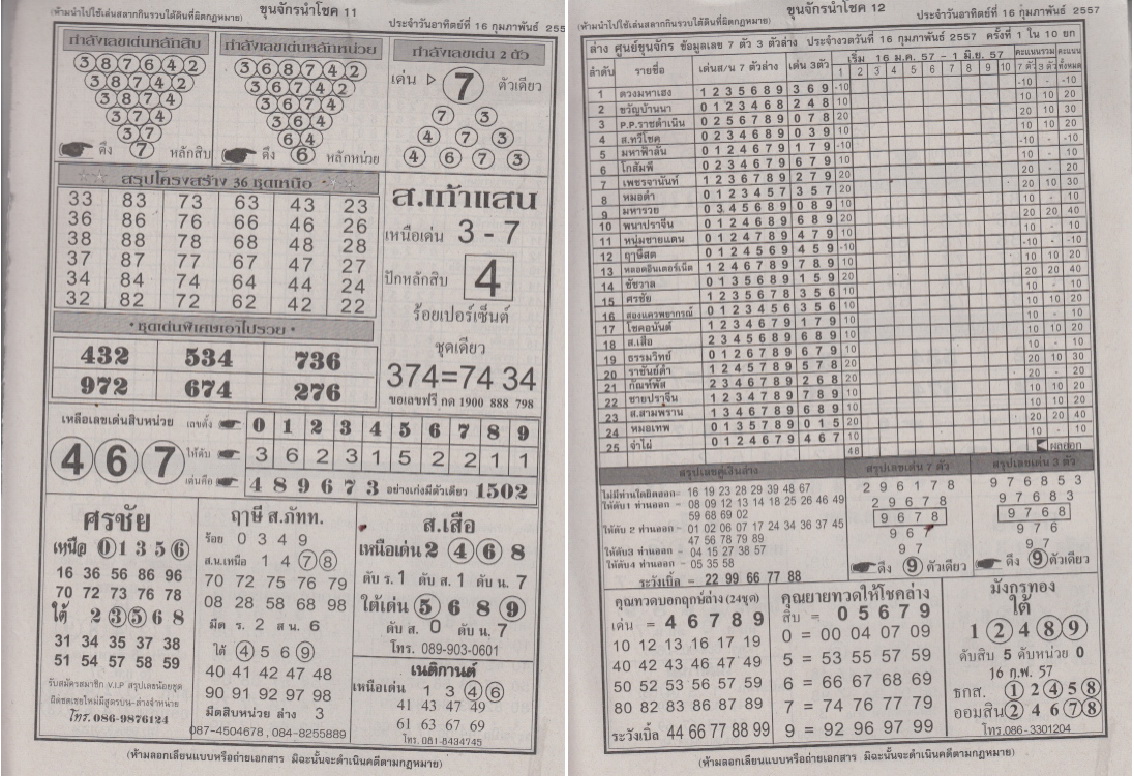 (ห้ามนำไปใช้เล่นสลากกินรวบใต้ดินที่ผิดกฎหมาย)
ขุนจักรนำโชค 11
ประจำวันอาทิตย์ที่ 16 กุมภาพันธ์ 255
กำลังเลขเด่นหลักสิบ
3 8 7 6 4 2
3 8 7 4 2
3 8 7 4
3 7 4
3 7
ดึง 7 หลักสิบ
กำลังเลขเด่นหลักหน่วย
3 6 8 7 4 2
3 6 7 4 2
3 6 7 4
3 6 4
6 4
ดึง 6 หลักหน่วย
กำลังเลขเด่น 2 ตัว
เด่น 7 ตัวเดียว
7 3
4 7 3
4 6 7 3
สรุปโครงสร้าง 36 ชุดเหนือ
33 83 73 63 43 23
36 86 76 66 46 26
38 88 78 68 48 28
37 87 77 67 47 27
34 84 74 64 44 24
32 82 72 62 42 22
ชุดเด่นพิเศษเอาไปรวย
432 534 736
972 674 276
ส.เก้าแสน
เหนือเด่น 3 - 7
ปักหลักสิบ 4
ร้อยเปอร์เซ็นต์
ชุดเดียว
374=74 34
ขอเลขฟรี กด 1900 888 798
เหลือเลขเด่นสิบหน่วย
4 6 7
เลขตั้ง 0 1 2 3 4 5 6 7 8 9
ให้ดับ 3 6 2 3 1 5 2 2 1 1
เด่นคือ 4 8 9 6 7 3 อย่างเก่งมีตัวเดียว 1502
ศรชัย
เหนือ 0 1 3 5 6
16 36 56 86 96
70 72 73 76 78
ใต้ 2 3 5 6 8
31 34 35 37 38
51 54 57 58 59
รับสมัครสมาชิก V.I.P สรุปเลขน้อยชุด
โทร. 086-9876124
ฤาษี ส.ภัทท.
ร้อย 0 3 4 9
ส.น.เหนือ 1 4 7 8
70 72 75 76 79
08 28 58 68 98
มืด ร. 2 ส น. 6
ใต้ 4 5 6 9
40 41 42 47 48
90 91 92 97 98
มืดสิบหน่วย ล่าง 3
087-4504678 , 084-8255889
ส.เสือ
เหนือเด่น 2 4 6 8
ดับ ร. 1 ดับ ส. 1 ดับ น. 7
ใต้เด่น 5 6 8 9
ดับ ส. 0 ดับ น. 7
โทร. 089-903-0601
เนติกานต์
เหนือเด่น 1 3 4 6
41 43 47 49
61 63 67 69
โทร. 081-8434745
(ห้ามลอกเลียนแบบหรือถ่ายเอกสาร มิฉะนั้นจะดำเนินคดีตามกฎหมาย)
(ห้ามนำไปใช้เล่นสลากกินรวบใต้ดินที่ผิดกฎหมาย)
ขุนจักรนำโชค 12
ประจำวันอาทิตย์ที่ 16 กุมภาพันธ์ 2557
ล่าง ศูนย์ขุนจักร ข้อมูลเลข 7 ตัว 3 ตัวล่าง ประจำงวดวันที่ 16 กุมภาพันธ์ 2557 ครั้งที่ 1 ใน 10 ยก
ลำดับ รายชื่อ เด่นส/น 7 ตัวล่าง เด่น 3ตัว เริ่ม 16 ม.ค. 57 - 1 มี.ย. 57 คะแนนรวม คะแนน
1 2 3 4 5 6 7 8 9 10 7 ตัว 3 ตัว ทั้งหมด
1 ดวงมหาเฮง 1 2 3 5 6 8 9 3 6 9 -10 -10 - -10
2 ขวัญบ้านนา 0 1 2 3 4 6 8 2 4 8 10 10 10 20
3 P.P.ราชดำเนิน 0 2 5 6 7 8 9 0 7 8 20 20 10 30
4 ส.ทวีโชค 0 2 3 4 6 8 9 0 3 9 10 10 10 20
5 มหาฟ้าลั่น 0 1 2 4 6 7 9 1 7 9 -10 -10 - -10
6 โกสัมพี 0 2 3 4 6 7 9 6 7 9 10 10 - 10
7 เพชรจานันท์ 1 2 3 6 7 8 9 2 7 9 20 20 - 20
8 หมอดำ 0 1 2 3 4 5 7 3 5 7 20 20 10 30
9 มหารวย 0 3 4 5 6 8 9 0 8 9 10 10 - 10
10 พนาปราจีน 0 1 2 4 6 8 9 6 8 9 20 20 20 40
11 หนุ่มชายแดน 0 1 2 4 7 8 9 4 7 9 10 10 - 10
12 ฤาษีสด 0 1 2 4 5 6 9 4 5 9 -10 -10 - -10
13 หลอดอินเตอร์เน็ต 1 2 4 6 7 8 9 7 8 9 10 10 10 20
14 ชัชวาล 0 1 3 5 6 8 9 1 5 9 20 20 20 40
15 ศรชัย 1 2 3 5 6 7 8 3 5 6 10 10 - 10
16 สองแควพยากรณ์ 0 1 2 3 4 5 6 3 5 6 10 10 10 20
17 โชคอนันต์ 1 2 3 4 6 7 9 1 7 9 10 10 - 10
18 ส.เสือ 2 3 4 5 6 8 9 6 8 9 10 10 10 20
19 ธรรมวิทย์ 0 1 2 6 7 8 9 6 7 9 10 10 - 10
20 ราชันย์ดำ 1 2 4 5 7 8 9 5 7 8 20 20 10 30
21 กัณฑ์พัส 2 3 4 6 7 8 9 2 6 8 10 10 10 20
22 ชายปราจีน 1 2 3 4 7 8 9 7 8 9 10 10 10 20
23 ส.สามพราน 1 3 4 6 7 8 9 6 8 9 20 20 20 40
24 หมอเทพ 0 1 3 5 7 8 9 0 1 5 10 10 - 10
25 จ่าไผ่ 0 1 2 4 6 7 9 4 6 7 10
48
สรุปเลขคู่เงินล่าง
ไม่มีท่านใดยึดออก= 16 19 23 28 29 39 48 67
ให้ดับ1 ท่านออก - 08 09 12 13 14 18 25 26 46 49
59 68 69 02
ให้ดับ 2 ท่านออก - 01 02 06 07 17 24 34 36 37 45
47 56 78 79 89
ให้ดับ3 ท่านออก - 04 15 27 38 57
ให้ดับ4 ท่านออก - 05 35 58
ระวังเบิ้ล = 22 99 66 77 88
สรุปเลขเด่น 7 ตัว
2 9 6 1 7 8
2 9 6 7 8
9 6 7 8
9 6 7
9 7
ดึง 9 ตัวเดียว
สรุปเลขเด่น 3 ตัว
9 7 6 8 5 3
9 7 6 8 3
9 7 6 8
9 7 6
9 7
ดึง 9 ตัวเดียว
คุณทวดบอกฤกษ์ล่าง (24ชุด)
เด่น = 4 6 7 8 9
10 12 13 16 17 19
40 42 43 46 47 49
50 52 53 56 57 59
80 82 83 86 87 89
ระวังเบิ้ล 44 66 77 88 99
คุณยายทวดให้โชคล่าง
สิบ = 0 5 6 7 9
0 = 00 04 07 09
5 = 53 55 57 59
6 = 66 67 68 69
7 = 74 76 77 79
9 = 92 96 97 99
มังกรทอง
ใต้
1 2 4 8 9
ดับสิบ 5 ดับหน่วย 0
16 ก.พ. 57
ธกส. 1 2 4 5 8
ออมสิน 2 4 6 7 8
โทร.086-3301204
(ห้ามลอกเลียนแบบหรือถ่ายเอกสาร มิฉะนั้นจะดำเนินคดีตามกฎหมาย)